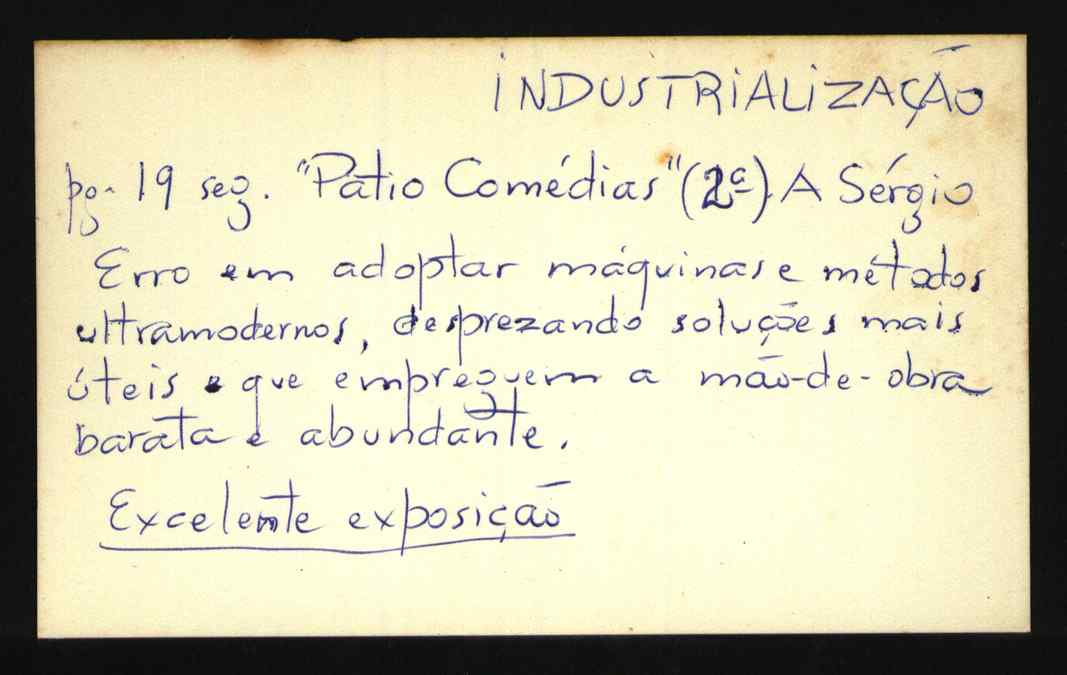 INDUSTRIALIZAÇÃO
pg. 19 seg. "Pátio Comédias" (2ª). A Sérgio
Erro em adoptar máquinas e métodos
ultramodernos, desprezando soluções mais
úteis e que empreguem a mão-de-obra
barata e abundante.
Excelente exposição